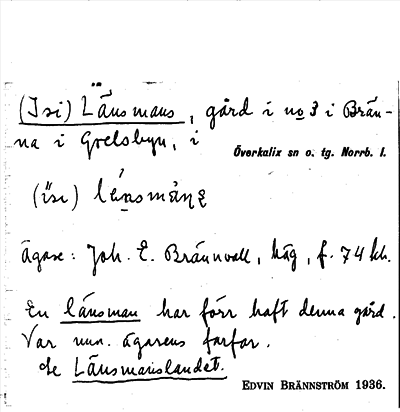 (Isi) Länsmans, gård i no 3 i Brän-
na i Grelsbyn, i
Överkalix sn o. tg. Norrb. l.
(isi)
Ägare: Joh. E. Brännvall, häg, f. 74 kh.
En länsman har förr haft denna gård.
Var nuv. ägarens farfar.
Se Länsmanslandet.
EDVIN BRÄNNSTRÖM 1936.